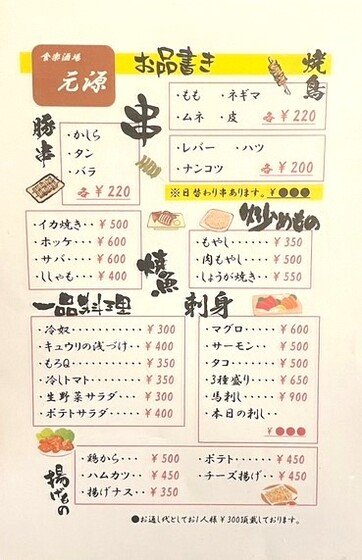 食楽酒場
元源
お品書き
焼鳥
・もも ・ネギマ
・ムネ ・皮
各 ¥220
串
・レバー ・ハツ
・ナンコツ 各 ¥200
豚串
・かしら
・タン
・バラ
各 ¥220
※日替わり串あります。¥●●●
・イカ焼き・・ ¥500
・ホッケ・・・ ¥600
・サバ・・・・ ¥600
・ししゃも・・ ¥400
焼魚
炒めもの
・もやし・・・・・・ ¥350
・肉もやし・・・・・ ¥500
・しょうが焼き・・・ ¥550
一品料理
・冷奴・・・・・・・・ ¥300
・キュウリの浅づけ・・ ¥400
・もろQ・・・・・・・ ¥350
・冷しトマト・・・・・ ¥350
・生野菜サラダ・・・・ ¥300
・ポテトサラダ・・・・ ¥400
刺身
・マグロ・・・・・・ ¥600
・サーモン・・・・・ ¥500
・タコ・・・・・・・ ¥500
・3種盛り・・・・・ ¥650
・馬刺し・・・・・・ ¥900
・本日の刺し・・
¥●●●
揚げもの
・鶏から・・・ ¥500
・ハムカツ・・ ¥450
・揚げナス・・ ¥350
・ポテト・・・・ ¥450
・チーズ揚げ・・ ¥450
●お通し代としてお1人様¥300頂戴しております。